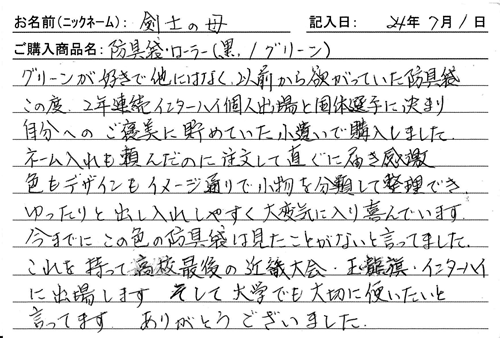 お名前(ニックネーム): 剣士の母 記入日: 24年 7月 1日
ご購入商品名: 防具袋・ローラー(黒/グリーン)
グリーンが好きで他にはなく、以前から欲がっていた防具袋
この度、2年連続インターハイ個人出場と国体選手に決まり
自分への ご褒美に貯めていた小遣いで購入しました。
ネーム入れも頼んだのに注文して直ぐに届き感激
色もデザインもイメージ通りで小物を分類して整理でき、
ゆったりと出し入れしやすく大変気に入り喜んでいます。
今までにこの色の防具袋は見たことがないと言ってました。
これを持って高校最後の近畿大会・玉龍旗・インターハイ
に出場します そして大学でも大切に使いたいと
言ってます ありがとうございました。